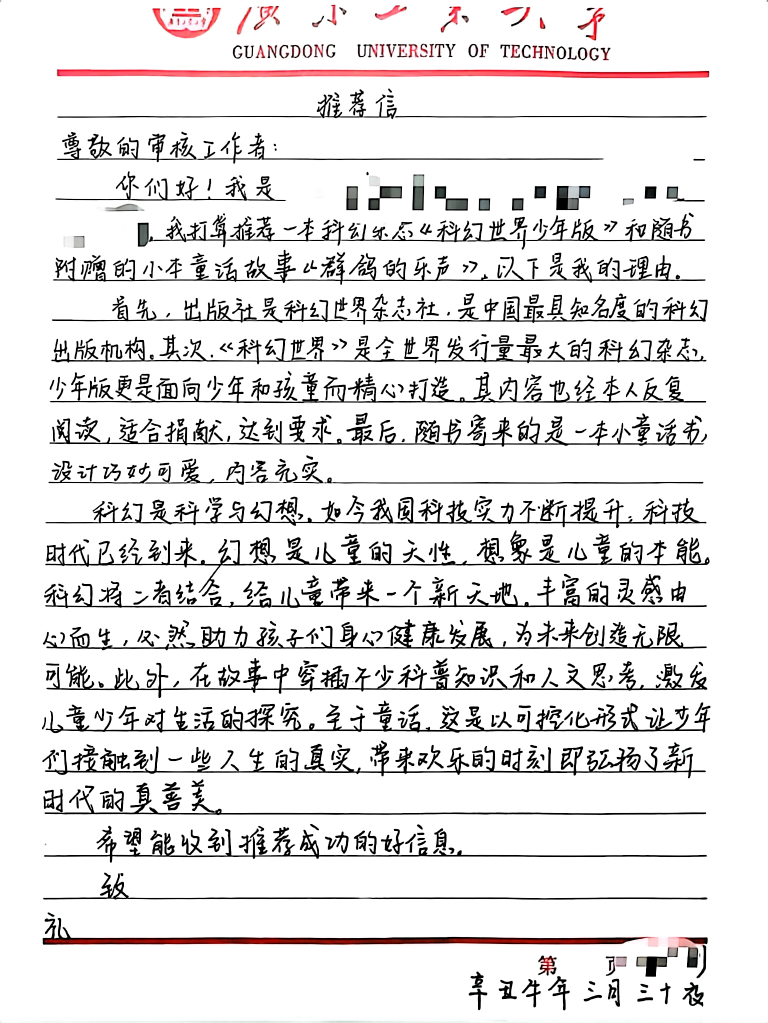 广东工业大学
GUANGDONG UNIVERSITY OF TECHNOLOGY
推荐信
尊敬的审核工作者：
你们好！我是
，我打算推荐一本科幻杂志《科幻世界少年版》和随书
附赠的小本童话故事《群鸽的乐声》，以下是我的理由。
首先，出版社是科幻世界杂志社，是中国最具知名度的科幻
出版机构。其次，《科幻世界》是全世界发行量最大的科幻杂志，
少年版更是面向少年和孩童而精心打造。其内容也经本人反复
阅读，适合捐献，达到要求。最后，随书寄来的是一本小童话书，
设计巧妙可爱，内容充实。
科幻是科学与幻想。如今我国科技实力不断提升，科技
时代已经到来。幻想是儿童的天性，想象是儿童的本能。
科幻将二者结合，给儿童带来一个新天地。丰富的灵感由
心而生，必然助力孩子们身心健康发展，为未来创造无限
可能。此外，在故事中穿插不少科普知识和人文思考，激发
儿童少年对生活的探究。至于童话，这是以可控化形式让少年
们接触到一些人生的真实，带来欢乐的时刻即弘扬了新
时代的真善美。
希望能收到推荐成功的好信息。
致
礼
第 页
辛丑牛年三月三十夜